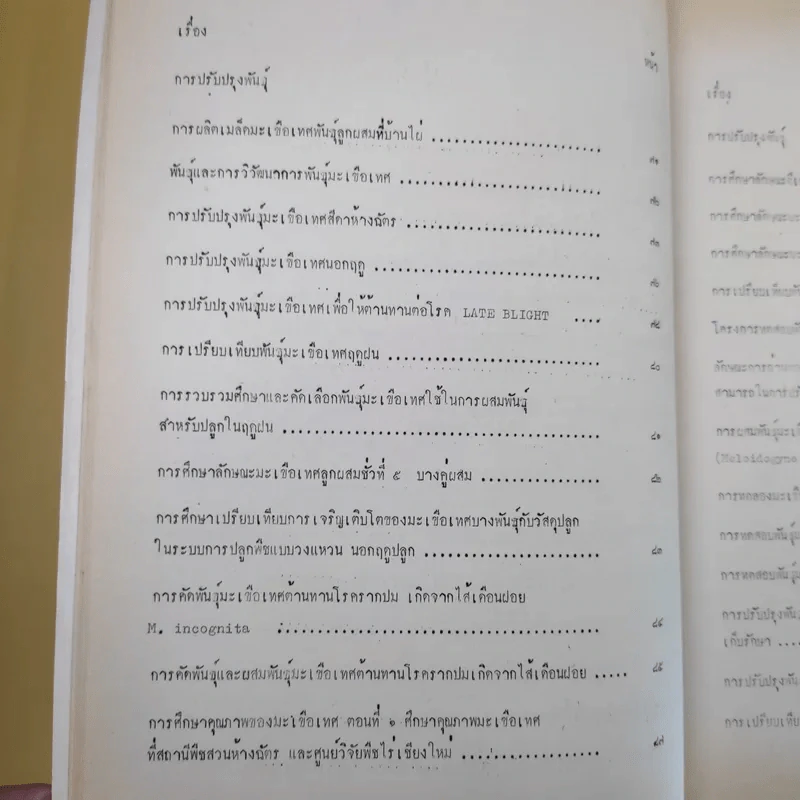 เรื่อง
หน้า
การปรับปรุงพันธุ์
การผลิตเมล็ดมะเขือเทศพันธุ์ลูกผสมที่บ้านไผ่ ........................
พันธุ์และการวิวัฒนาการพันธุ์มะเขือเทศ ........................
การปรับปรุงพันธุ์มะเขือเทศสีดาห้างฉัตร ........................
การปรับปรุงพันธุ์มะเขือเทศนอกฤดู ........................
การปรับปรุงพันธุ์มะเขือเทศเพื่อให้ต้านทานต่อโรค LATE BLIGHT ....
การเปรียบเทียบพันธุ์มะเขือเทศฤดูฝน ........................ ๘๐
การรวบรวมศึกษาและคัดเลือกพันธุ์มะเขือเทศใช้ในการผสมพันธุ์
สำหรับปลูกในฤดูฝน ........................ ๘๑
การศึกษาลักษณะมะเขือเทศลูกผสมชั่วที่ ๕ บางคู่ผสม ................ ๘๒
การศึกษาเปรียบเทียบการเจริญเติบโตของมะเขือเทศบางพันธุ์กับวัสดุปลูก
ในระบบการปลูกพืชแบบวงแหวน นอกฤดูปลูก .................... ๘๓
การคัดพันธุ์มะเขือเทศต้านทานโรครากปม เกิดจากไส้เดือนฝอย
M. incognita ........................ ๘๔
การคัดพันธุ์และผสมพันธุ์มะเขือเทศต้านทานโรครากปมเกิดจากไส้เดือนฝอย ..... ๘๕
การศึกษาคุณภาพของมะเขือเทศ ตอนที่ ๑ ศึกษาคุณภาพมะเขือเทศ
ที่สถานีพืชสวนห้างฉัตร และศูนย์วิจัยพืชไร่เชียงใหม่ ................ ๘๗
เรื่อง
การปรับปรุงพันธุ์
การศึกษาลักษณะ
การศึกษาลักษณะ
การศึกษาลักษณะ
การเปรียบเทียบ
โครงการทดสอบ
สามารถในการ
การผสมพันธุ์
(Meloidogyne
การทดลอง
การทดสอบพันธุ์
การทดสอบพันธุ์
การปรับปรุงพันธุ์
เก็บรักษา ....
การปรับปรุงพันธุ์
การเปรียบเทียบ